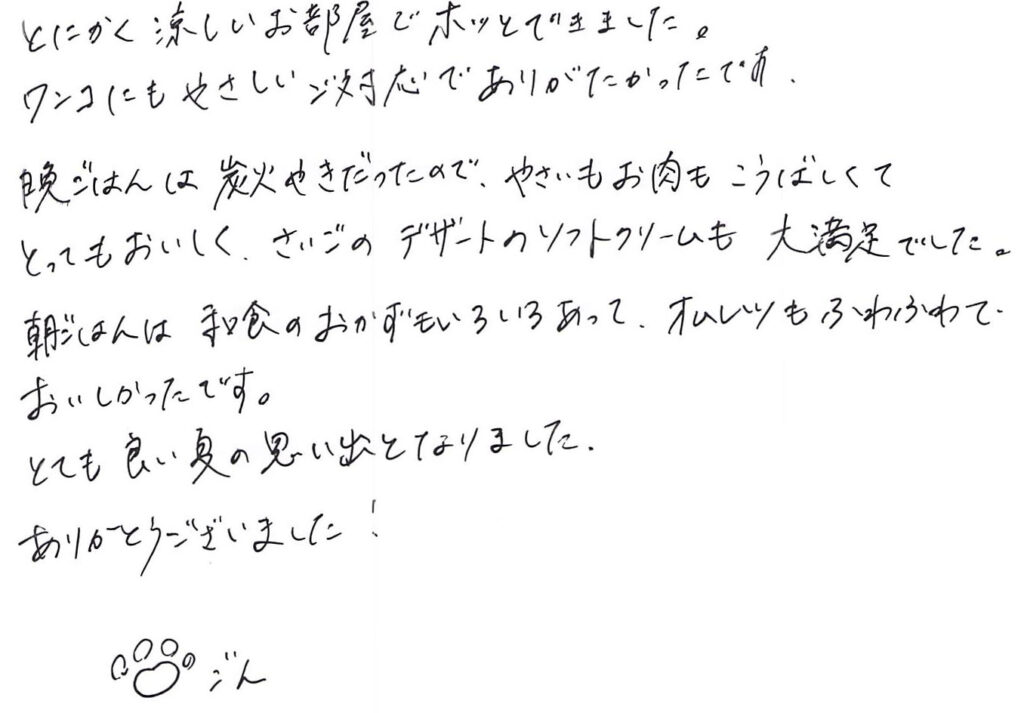 とにかく涼しいお部屋でホッとできました。
ワンコにもやさしいご対応でありがたかったです.
晩ごはんは炭火やきだったので、やさいもお肉もこうばしくて
とってもおいしく、さいごのデザートのソフトクリームも大満足でした。
朝ごはんは和食のおかずもいろいろあって、オムレツもふわふわで
おいしかったです。
とても良い夏の思い出となりました.
ありがとうございました!
ごん